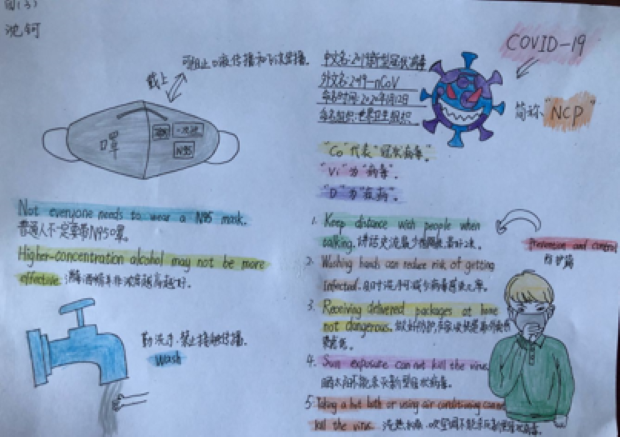 四(3)
沈钶
戴上
可阻止口液传播和飞沫传播。
口罩
N95
Not everyone needs to wear a N95 mask.
普通人不一定要带N95口罩。
Higher-concentration alcohol may not be more
effective.
勤洗手,禁止接触传播。
Wash
COVID-19
中文名:2019新型冠状病毒
外文名:2019-nCoV
命名时间:2020年1月12日
命名组织:世界卫生组织
简称"NCP"
"Co"代表"冠状病毒"。
"Vi"为"病毒"。
"D"为"疾病"。
1. Keep distance with people when
talking.
Prevention and control
防护篇
2. Washing hands can reduce risk of getting
infected.
3. Receiving delivered packages at home
not dangerous.
4. Sun exposure can not kill the virus.
晒太阳不能杀灭新型冠状病毒。
5. Taking a hot bath or using air conditioning cannot
kill the virus.